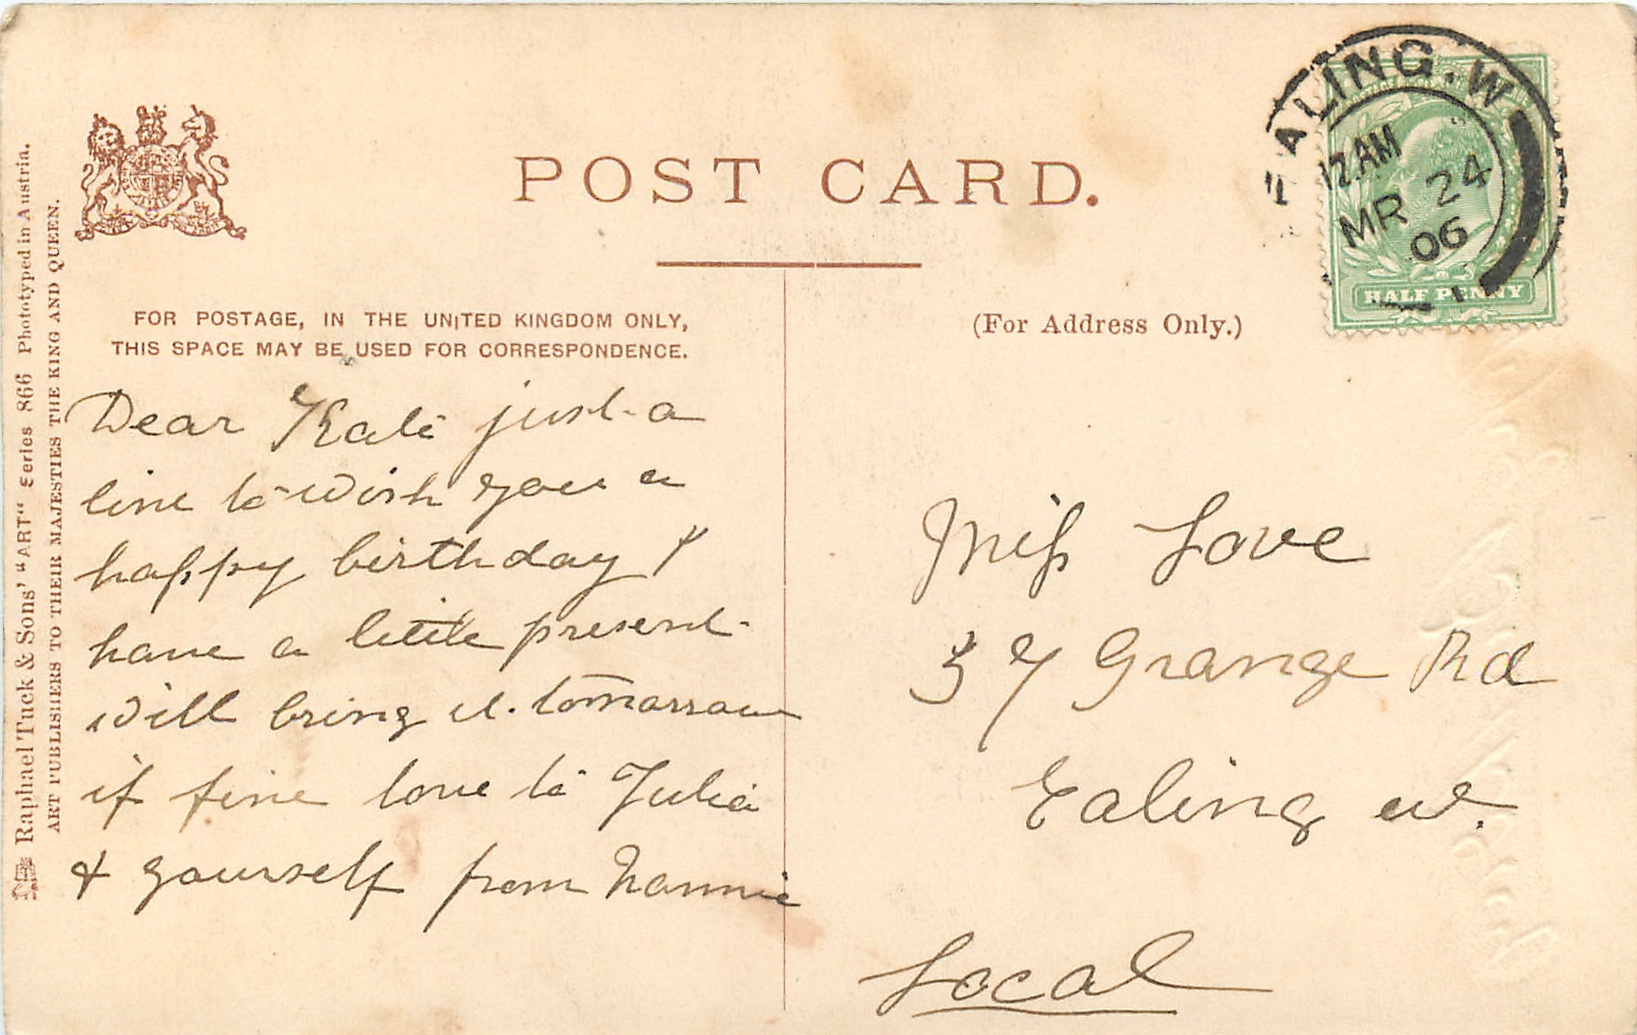 POST CARD.
FOR POSTAGE, IN THE UNITED KINGDOM ONLY,
THIS SPACE MAY BE USED FOR CORRESPONDENCE.
(For Address Only.)
EALING. W
12.AM
MR 24
06
HALF PENNY
Raphael Tuck & Sons' "ART" Series 866 Phototyped in Austria.
ART PUBLISHERS TO THEIR MAJESTIES THE KING AND QUEEN.
Dear Kate just a
line to wish you a
happy birthday I
have a little present
will bring it tomorrow
if fine love to Julia
& yourself from Nannie
Miss Love
37 Grange Rd
Ealing W.
Local